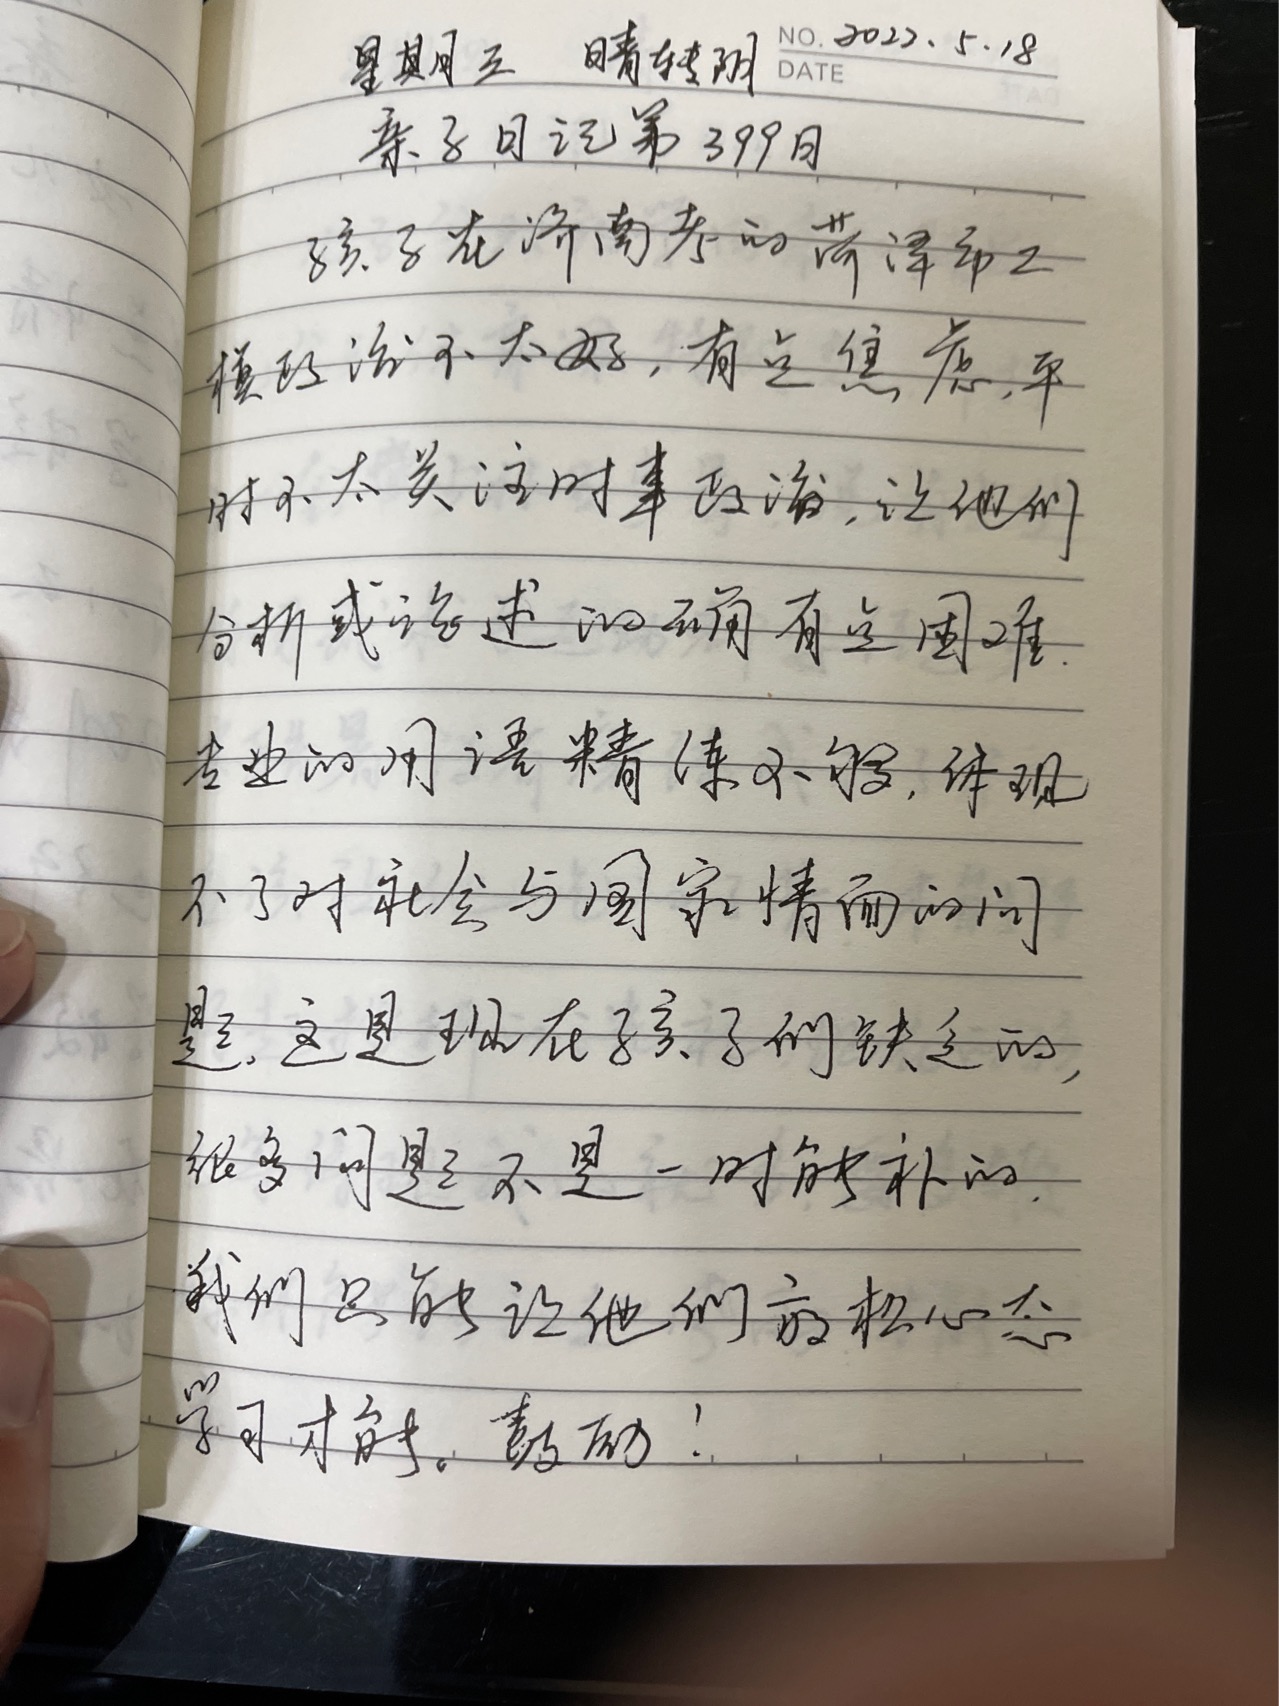 NO. 2022.5.18
星期三 晴转阴
DATE
亲子日记第399日
孩子在济南考的菏泽市二
模政治不太好,有点焦虑,平
时不太关注时事政治,让他们
分析或论述的确有点困难.
专业的用语精练不够,体现
不了对社会与国家情面的问
题.这是现在孩子们缺乏的,
很多问题不是一时能补的.
我们只能让他们放松心态
学习才能。鼓励!